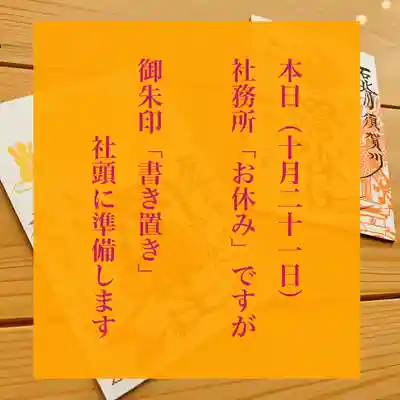 本日（十月二十一日）
社務所「お休み」ですが
御朱印「書き置き」
社頭に準備します